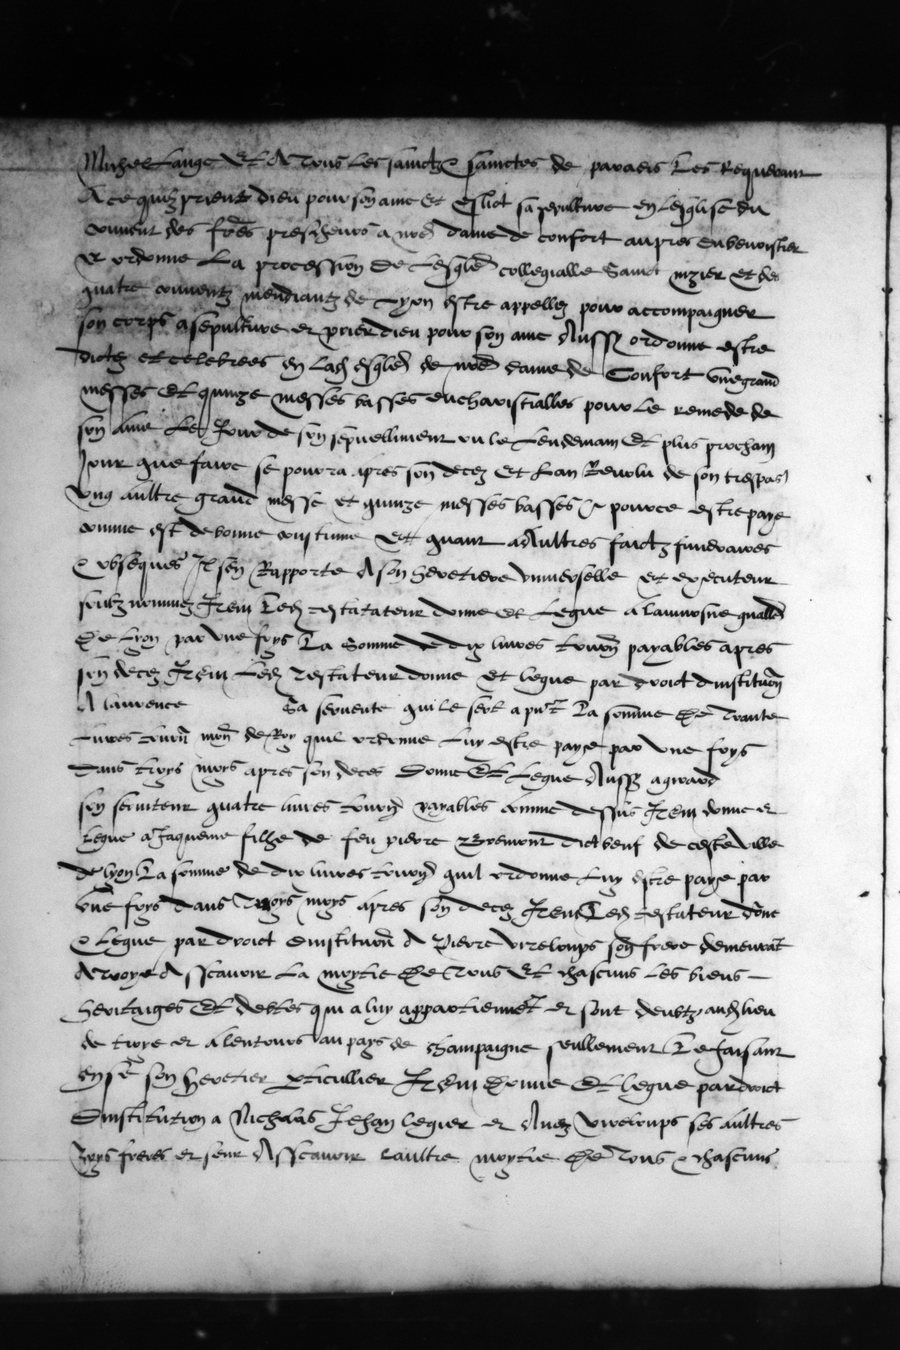 Michel lange Et A tous les sainctz & sainctes de paradis Les Requerant
A ce quilz prient dieu pour son ame Et Eslict sa sepulture en lesglise du
couvent des freres prescheurs a nostre dame de confort aupres du benoistier
Et ordonne La procession De Lesglise collegialle Sainct nizier et des
quatre couventz mendiantz de Lyon estre appellez pour accompaigner
son corps a sepulture et prier dieu pour son ame Aussy ordonne estre
dictes et celebrees en lad esglise de nostre dame de Confort une grand
messes Et quinze messes basses eucharistialles pour Le remede de
son ame Le Jour de son sepvelliment ou le Lendemain Et plus prochain
Jour que faire se pourra apres son decez Et Lan Revolu de son trespas
Ung aultre grand messe et quinze messes basses & pource estre paye
comme est de bonne coustume Et quant a Aultres faictz funeraires
& obseques Il sen Rapporte A son heretiere universelle et executeur
soubz nommez Item Led testatateur donne et Legue a laumosne gnalle
De Lyon par une foys La Somme de dix livres tourn payables apres
son decez Item Led Testateur donne et legue par droict dinstitution
A laurence Sa servente qui le sert a pnt La somme De trante
Livres tourn monn de Roy quil ordonne Luy estre paye par une foys
dans troys moys apres son deces Donne Et Legue Aussy a girard
son serviteur quatre livres tourn payables comme dessus Item donne et
Legue a Jaqueme filhe de feu pierre dict beuf de ceste ville
de lyon La somme de dix livres tourn quil ordonne Luy estre paye par
une foys dans Troys moys apres son decez Item Led testateur donne
& legue par droict dinstitution A Pierre Vireloups son frere demeurat
A troye A sscavoir La moytie De tous Et chascuns Les biens
heritaiges Et debtes qui a luy appartiennet et sont deubtz aud lieu
de troye et alentours au pays de champaigne seullement Le faisant
en ce son heretier pticullier Item Donne Et legue par droict
Dinstitution a Nicholas Jehan legier et Vireloups ses aultres
troys freres et seur Asscavoir laultre moytie De tous & chascuns